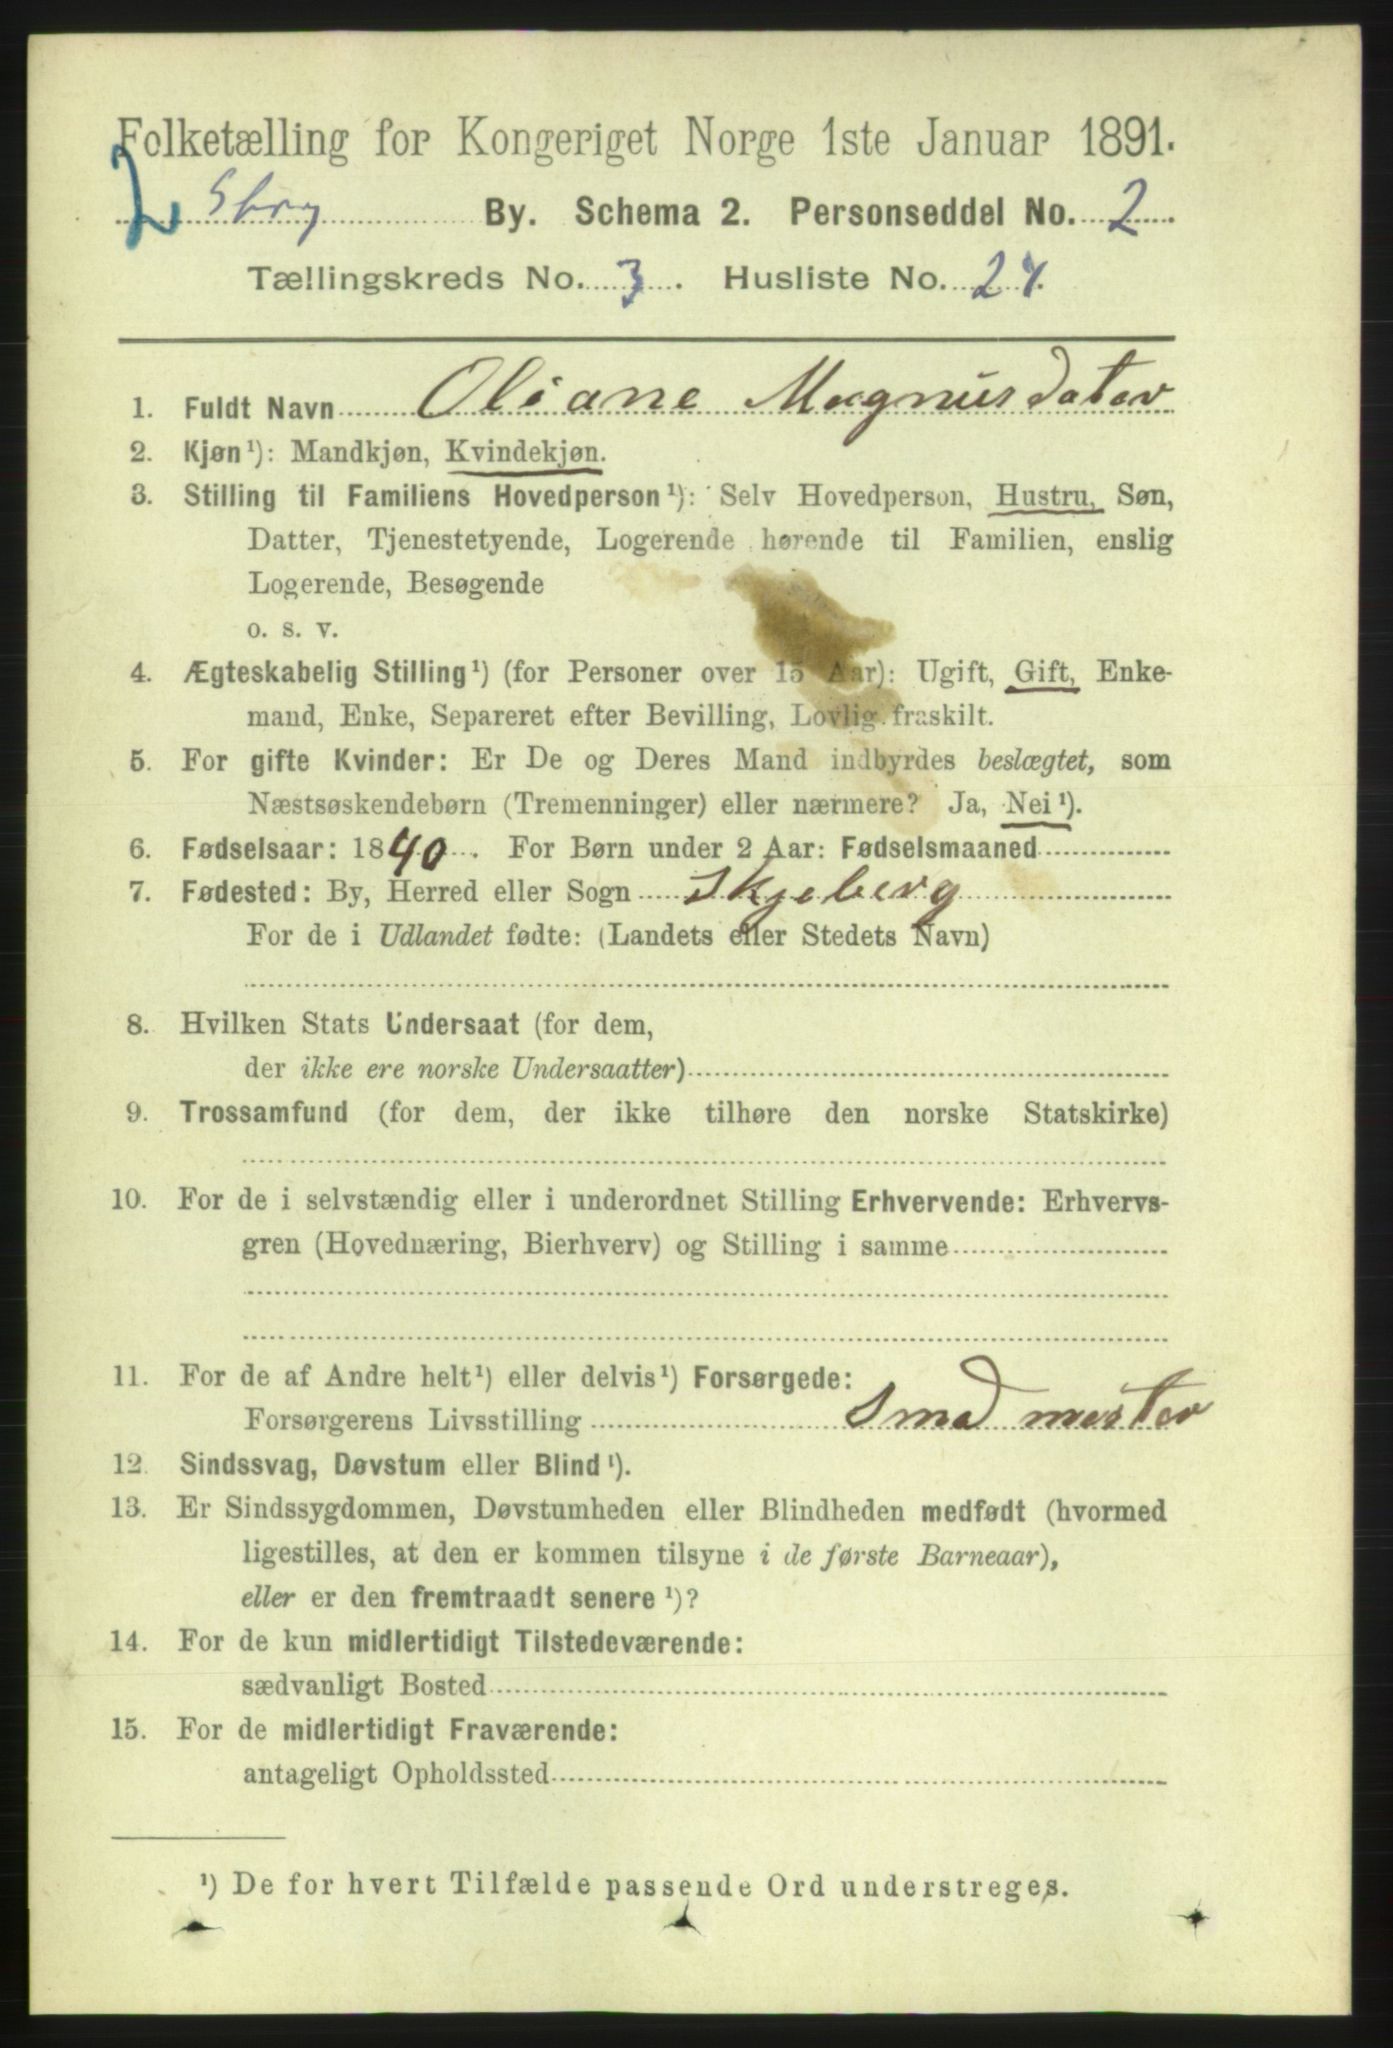 Folketælling for Kongeriget Norge 1ste Januar 1891.
2 Sbrg By. Schema 2. Personseddel No. 2.
Tællingskreds No. 3. Husliste No. 24.
1. Fuldt Navn Oliane Magnusdater
2. Kjøn¹): Mandkjøn, Kvindekjøn.
3. Stilling til Familiens Hovedperson¹): Selv Hovedperson, Hustru, Søn,
Datter, Tjenestetyende, Logerende hørende til Familien, enslig
Logerende, Besøgende
o. s. v.
4. Ægteskabelig Stilling¹) (for Personer over 15 Aar): Ugift, Gift, Enke-
mand, Enke, Separeret efter Bevilling, Lovlig fraskilt.
5. For gifte Kvinder: Er De og Deres Mand indbyrdes beslægtet, som
Næstsøskendebørn (Tremenninger) eller nærmere? Ja, Nei¹).
6. Fødselsaar: 1840. For Børn under 2 Aar: Fødselsmaaned
7. Fødested: By, Herred eller Sogn Skjeberg
For de i Udlandet fødte: (Landets eller Stedets Navn)
8. Hvilken Stats Undersaat (for dem,
der ikke ere norske Undersaatter)
9. Trossamfund (for dem, der ikke tilhøre den norske Statskirke)
10. For de i selvstændig eller i underordnet Stilling Erhvervende: Erhvervs-
gren (Hovednæring, Bierhverv) og Stilling i samme
11. For de af Andre helt¹) eller delvis¹) Forsørgede:
Forsørgerens Livsstilling Smedmester
12. Sindssvag, Døvstum eller Blind¹).
13. Er Sindssygdommen, Døvstumheden eller Blindheden medfødt (hvormed
ligestilles, at den er kommen tilsyne i de første Barneaar),
eller er den fremtraadt senere¹)?
14. For de kun midlertidigt Tilstedeværende:
sædvanligt Bosted
15. For de midlertidigt Fraværende:
antageligt Opholdssted
¹) De for hvert Tilfælde passende Ord understreges.